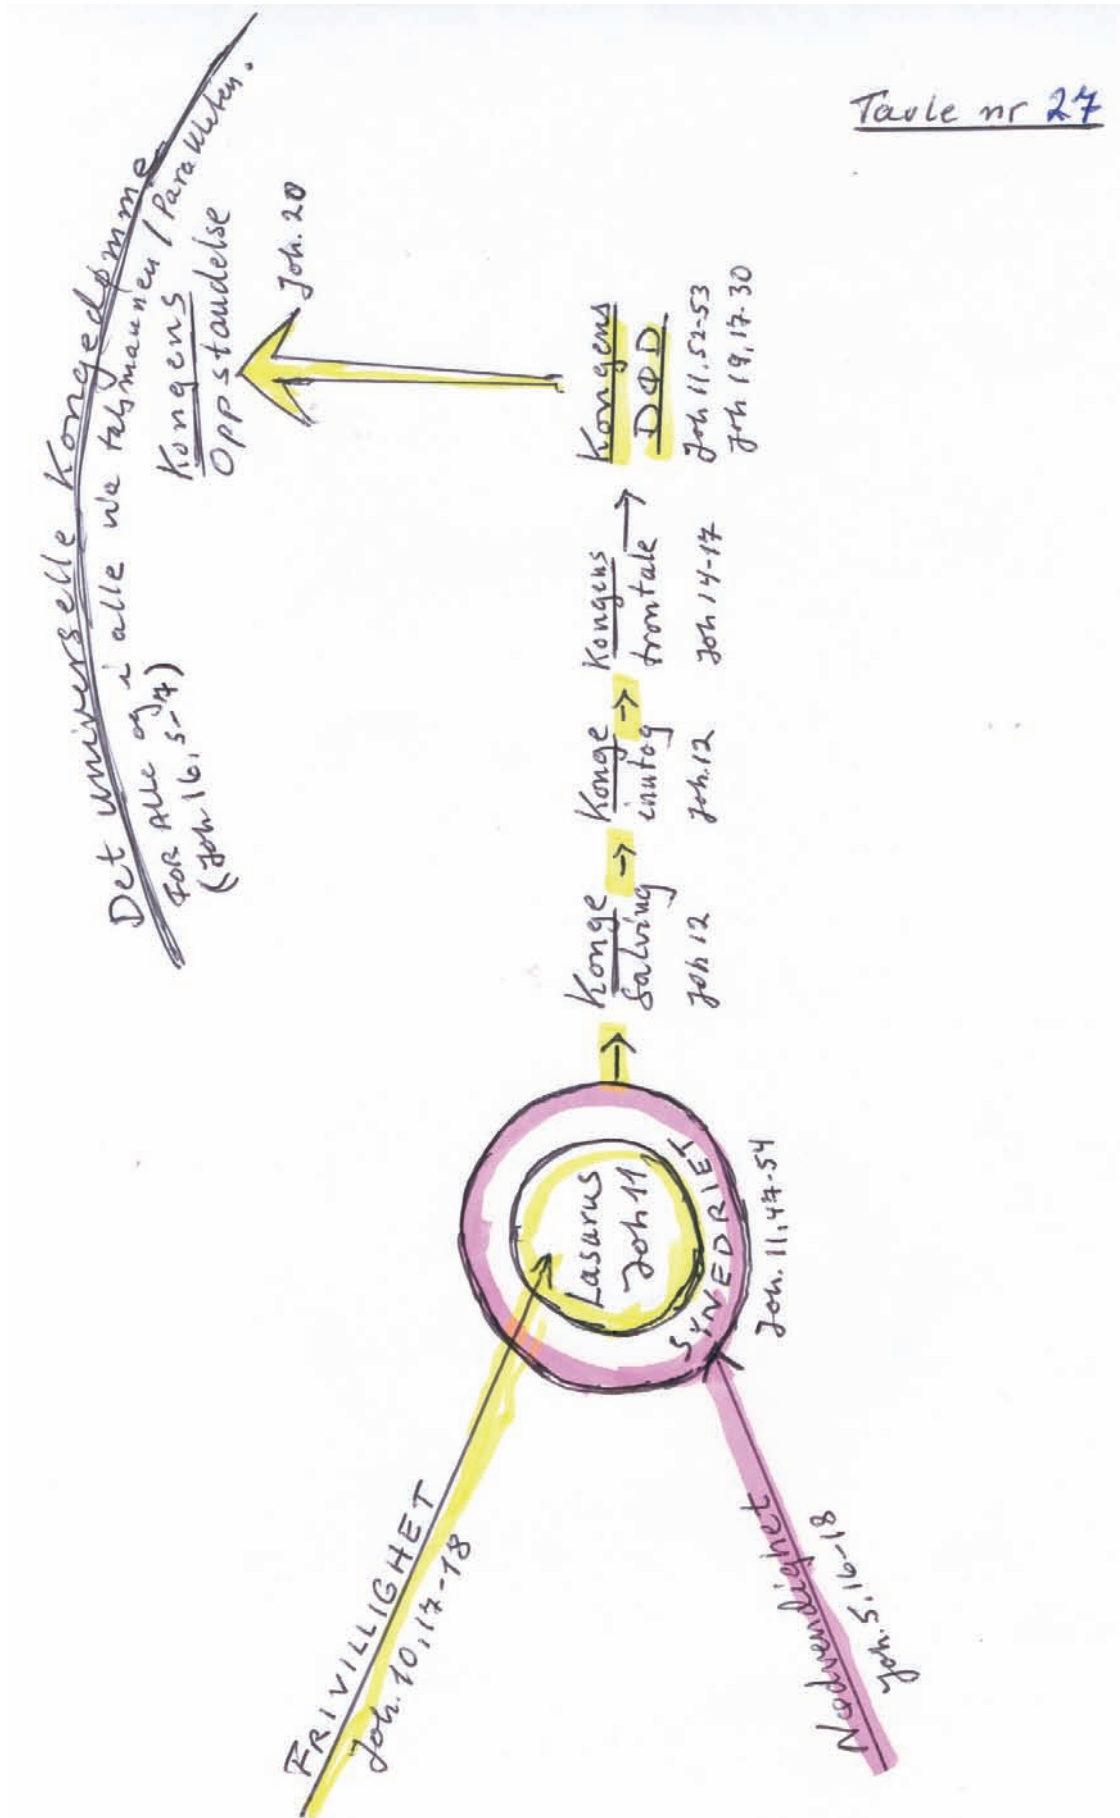 Tavle nr 27
Det universelle Kongedømme
FOR Alle og i alle via talsmannen / Parakleten.
(Joh 16, 5-7)
Kongens
Oppstandelse
Joh. 20
FRIVILLIGHET
Joh. 10, 17-18
Nødvendighet
Joh. 5, 16-18
Lasarus
Joh 11
SYNEDRIET
Joh. 11, 47-54
→
Konge
salving
Joh 12
→
Konge
inntog
Joh. 12
→
Kongens
trontale
Joh 14-17
→
Kongens
DØD
Joh 11, 52-53
Joh 19, 17-30